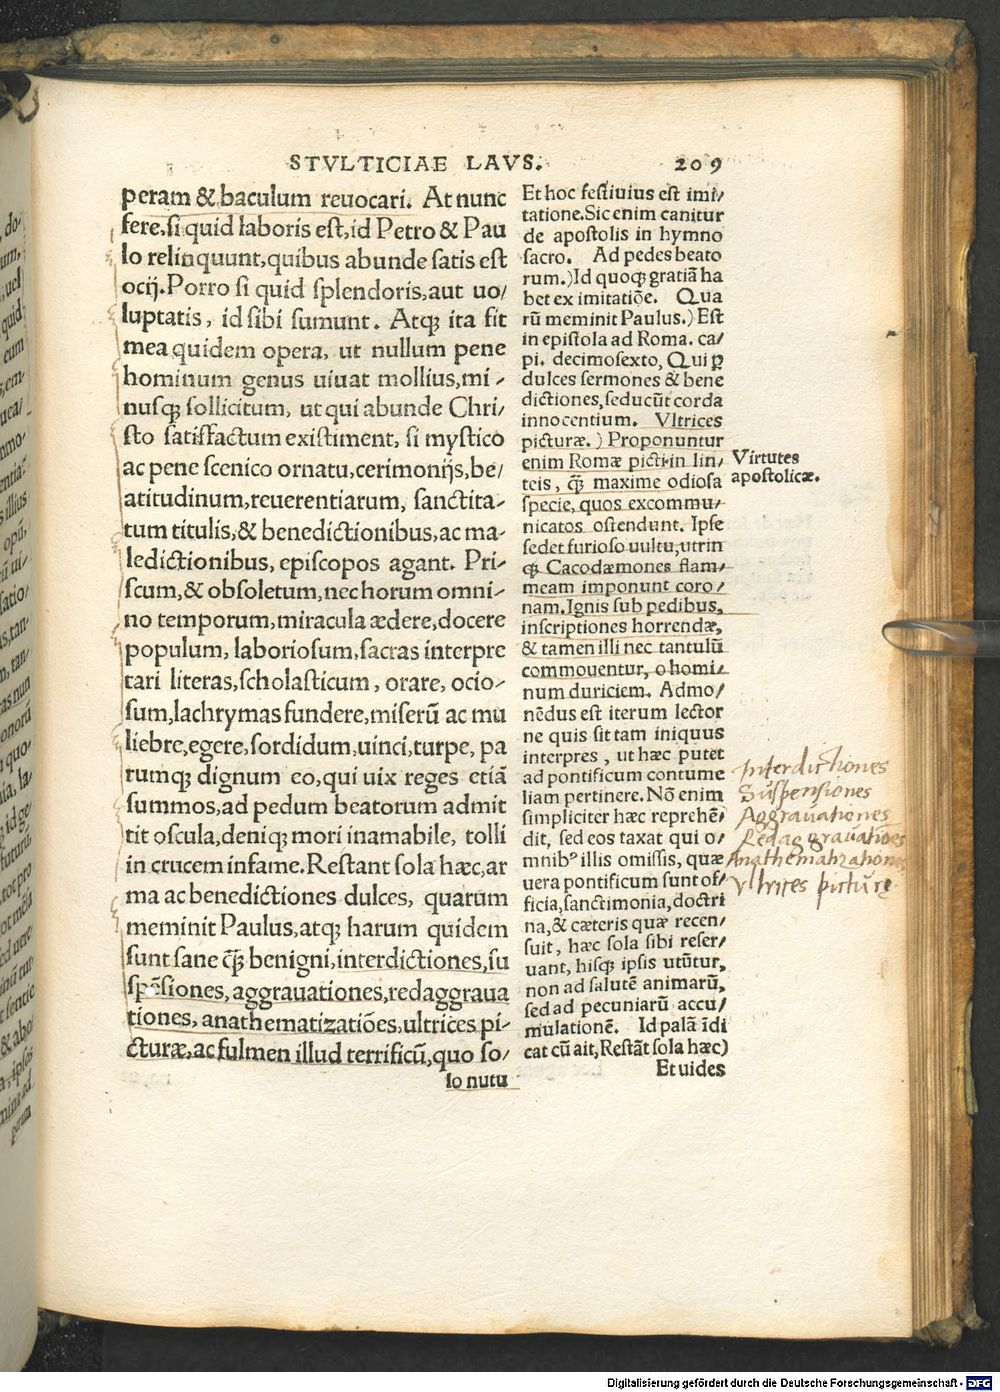 STVLTICIAE LAVS. 209
peram & baculum reuocari. At nunc
fere, si quid laboris est, id Petro & Pau
lo relinquunt, quibus abunde satis est
ocij. Porro si quid splendoris, aut uo/
luptatis, id sibi sumunt. Atqꝫ ita fit
mea quidem opera, ut nullum pene
hominum genus uiuat mollius, mi/
nusqꝫ sollicitum, ut qui abunde Chri/
sto satisfactum existiment, si mystico
ac pene scenico ornatu, cerimonijs, be/
atitudinum, reuerentiarum, sanctita/
tum titulis, & benedictionibus, ac ma/
ledictionibus, episcopos agant. Pri/
scum, & obsoletum, nec horum omni/
no temporum, miracula ædere, docere
populum, laboriosum, sacras interpre
tari literas, scholasticum, orare, ocio/
sum, lachrymas fundere, miserū ac mu
liebre, egere, sordidum, uinci, turpe, pa
rumqꝫ dignum eo, qui uix reges etiā
summos, ad pedum beatorum admit
tit oscula, deniqꝫ mori inamabile, tolli
in crucem infame. Restant sola hæc, ar
ma ac benedictiones dulces, quarum
meminit Paulus, atqꝫ harum quidem
sunt sane q̄ꝫ benigni, interdictiones, su
spēsiones, aggrauationes, redaggraua
tiones, anathematizatiōes, ultrices pi/
cturæ, ac fulmen illud terrificū, quo so/
lo nutu
Et hoc festiuius est imi/
tatione. Sic enim canitur
de apostolis in hymno
sacro. Ad pedes beato
rum.) Id quoqꝫ gratiā ha
bet ex imitatiōe. Qua
rū meminit Paulus.) Est
in epistola ad Roma. ca/
pi. decimosexto, Qui ꝑ
dulces sermones & bene
dictiones, seducūt corda
innocentium. Vltrices
picturæ.) Proponuntur
enim Romæ picti in lin/
teis, q̄ꝫ maxime odiosa
specie, quos excommu/
nicatos ostendunt. Ipse
sedet furioso uultu, utrin
qꝫ Cacodæmones flam/
meam imponunt coro/
nam. Ignis sub pedibus,
inscriptiones horrendæ,
& tamen illi nec tantulū
commouentur, o homi/
num duriciem. Admo/
nēdus est iterum lector
ne quis sit tam iniquus
interpres, ut hæc putet
ad pontificum contume
liam pertinere. Nō enim
simpliciter hæc reprehē/
dit, sed eos taxat qui o/
mnibꝰ illis omissis, quæ
uera pontificum sunt of/
ficia, sanctimonia, doctri
na, & cæteris quæ recen/
suit, hæc sola sibi reser/
uant, hisqꝫ ipsis utūtur,
non ad salutē animarū,
sed ad pecuniarū accu/
mulationē. Id palā idi
cat cū ait, Restāt sola hæc)
Et uides
Virtutes
apostolicæ.
Interdictiones
Suspensiones
Aggrauationes
Redaggrauatiōes
Anathematizationes
Vltrices picturę
Digitalisierung gefördert durch die Deutsche Forschungsgemeinschaft - DFG